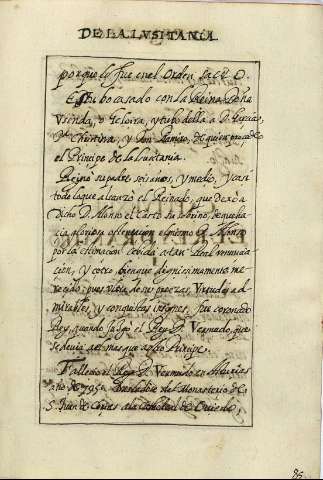 DE LA LVSITANIA.
porque lo fue en el Orden Sacro.
Estubo casado con la Reina Doña
Vsinda, o Eloira, y tubo della a D. Garcia,
Christina, y Don Ramiro, de quien procede
el Principe de la Lusitania.
Reinò su padre seis años, y medio, y casi
todo lo que alcanzò el Reinado, que dexò a
Dicho D. Alonso el Casto su sobrino,
gloriosa ostentacion el mismo D. Alonso
por la estimacion debida a tan Real
cion, y cetro bien que dignissimamente me
recido; pues vista de sus proezas, Virtudes ad
mirables, y conquistas insignes, fue coronado
Rey, quando juzgò el Rey D. Vermudo, que
se devia a el mas que a otro Principe.
Falleciò el Rey D. Vermudo en Asturias
año de 795. del Monasterio de
S. Juan de Corias a la Ciudad de Oviedo.
85